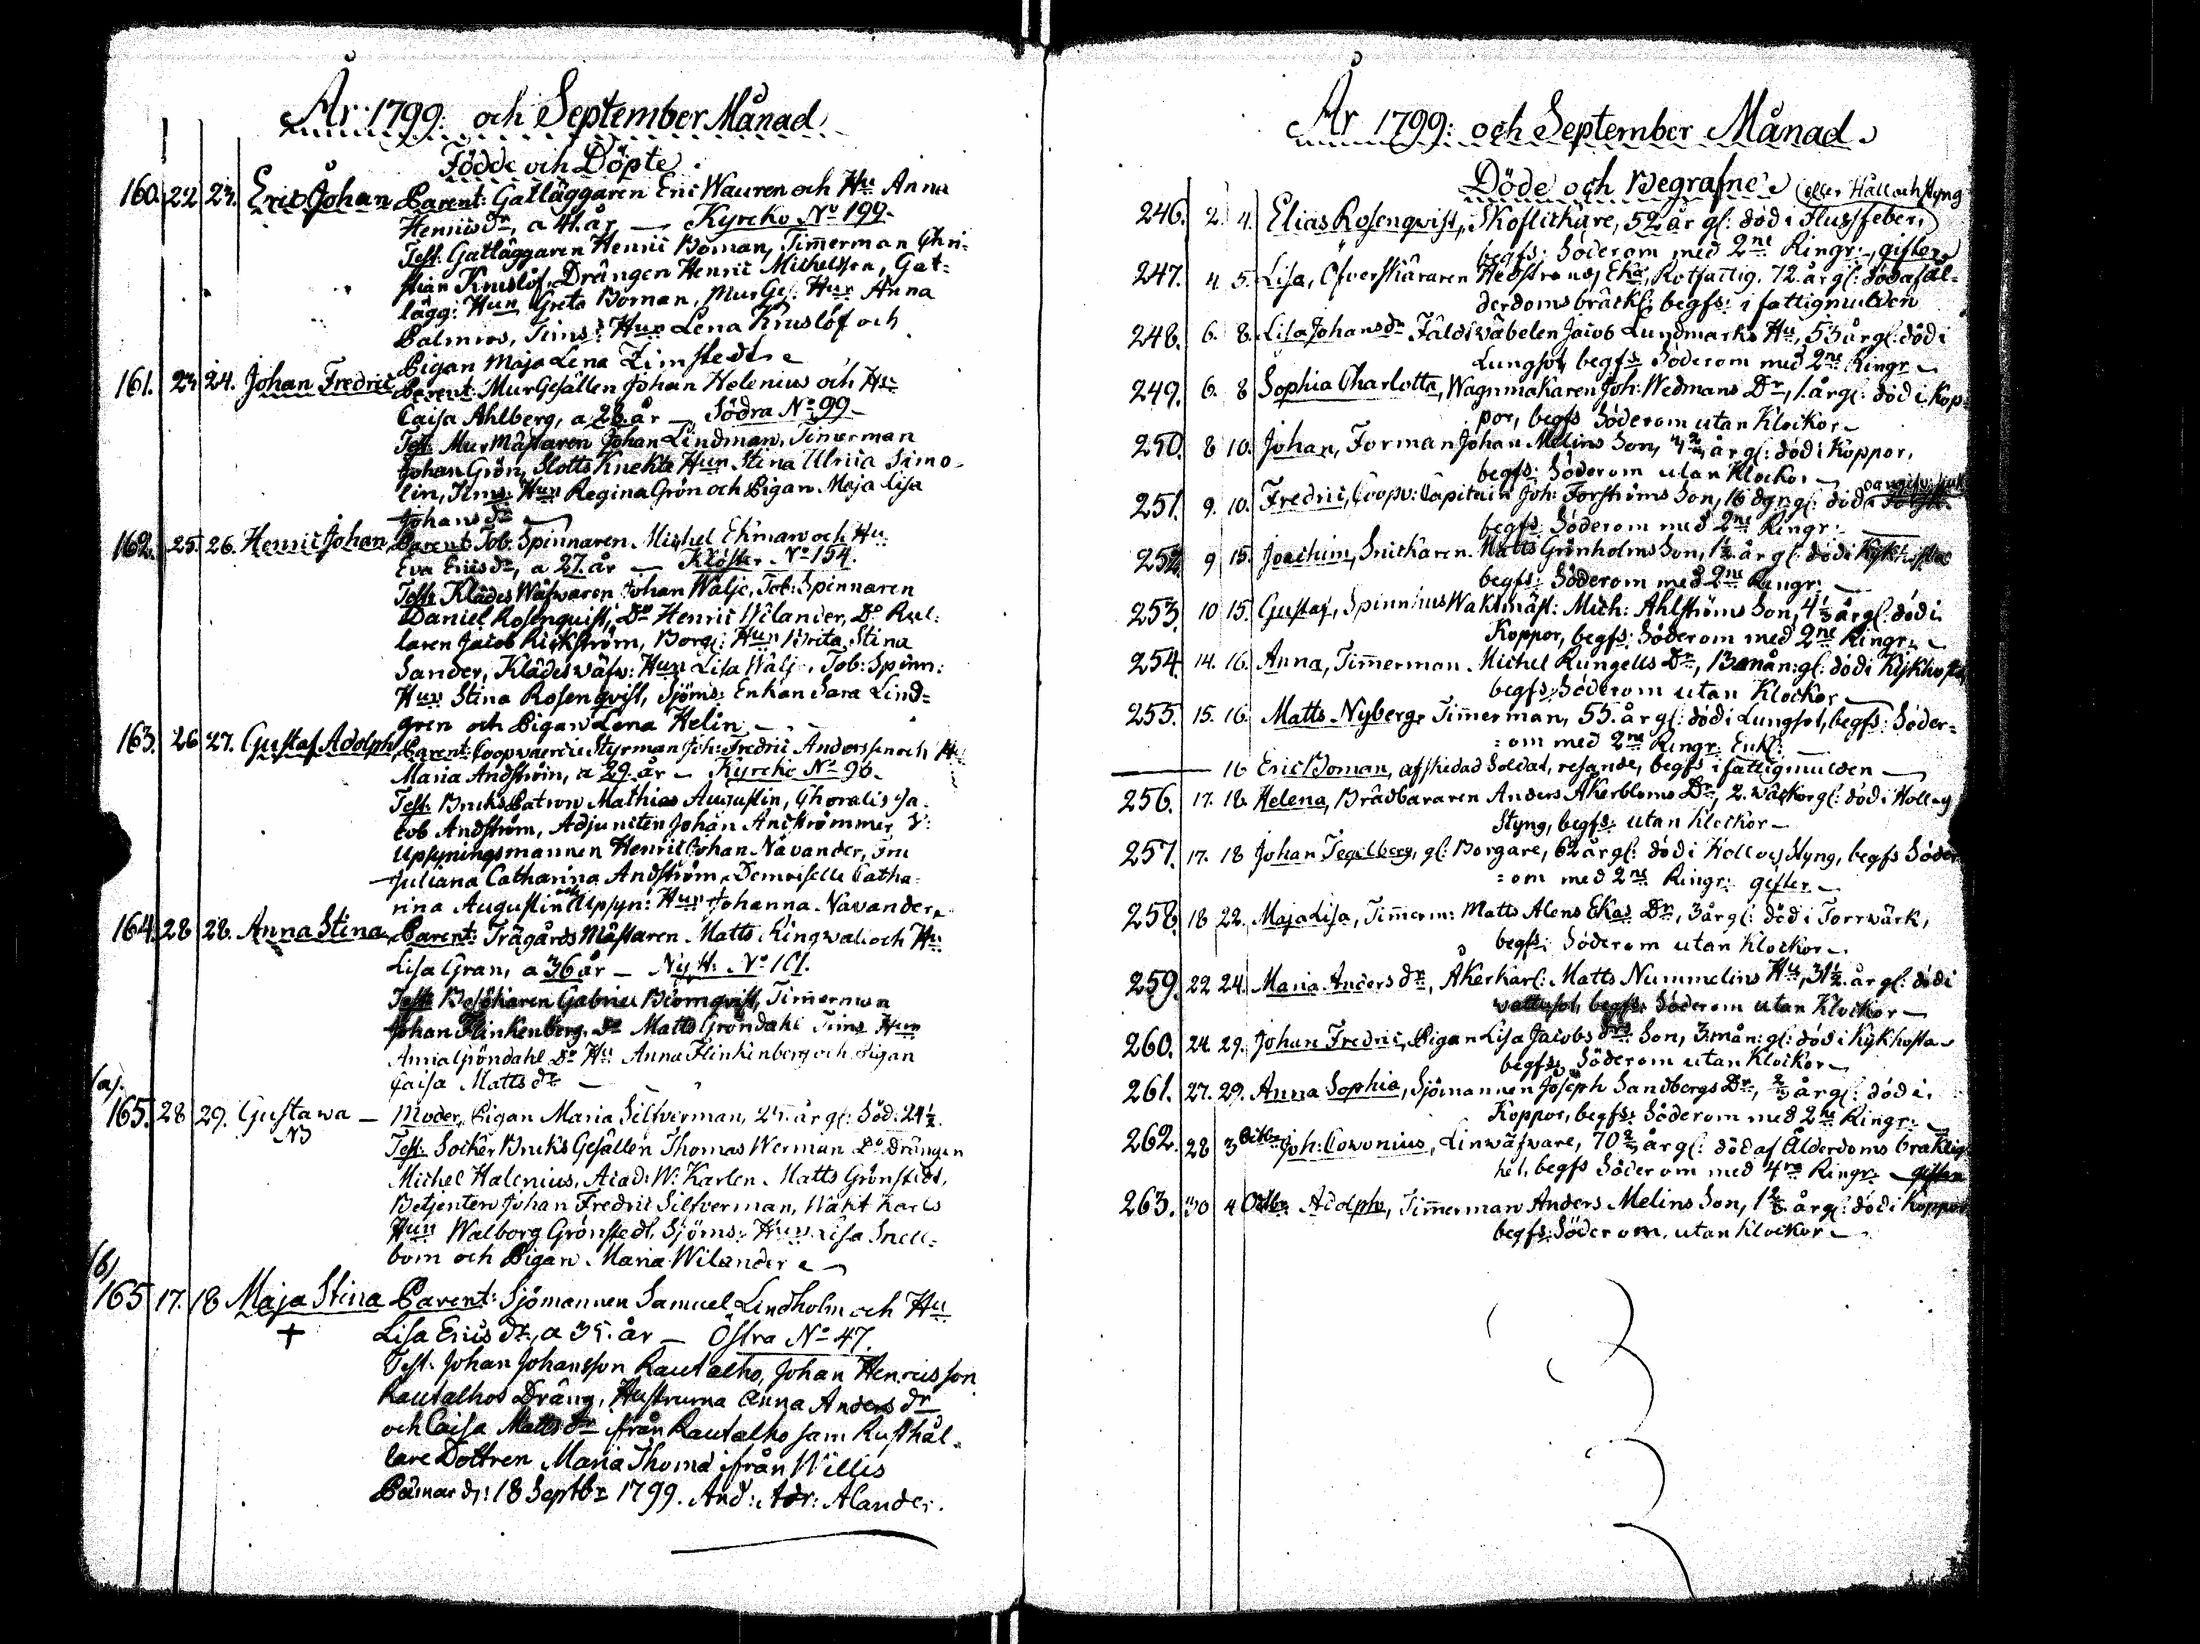 År 1799. och September Månad
Födde och Döpte.
160. 22 23. Eric Johan Parent: Gatläggaren Eric Wauren och Hu Anna
Henricsdr, a 41. år — Kyrcko No 199.
Test. Gatläggaren Henric Boman, Timmerman Chri-
stian Kruslöf, Drängen Henric Michelsson, Gat-
lägg: Hun Greta Boman, MurGes: Hun Anna
Palmros, Timr: Hun Lena Kruslöf och
Pigan Maja Lena Limstedt
161. 23 24. Johan Fredric Parent: MurGesällen Johan Helenius och Hu
Caisa Ahlberg, a 28. år — Södra No 99—
Test. MurMästaren Johan Lindman, Timerman
Johan Grön, Slotts Knekts Hun Stina Ulrica Simo-
lin, Tims: Hun Regina Grön och Pigan Maja Lisa
Johansdr
162. 25. 26. Henric Johan Parent Tob. Spinnaren Michel Ekman och Hu
Eva Ericsdr, a 27. år — Kloster No 154.
Test: KlädesWäfvaren Johan Walje, Tob: Spinnaren
Daniel Rosenquist, Do Henric Wilander, Do Rul:
laren Jacob Rickström, Borg: Hun Brita Stina
Sander, Klädeswäfv: Hun Lisa Walje, Tob: Spinn:
Hun Stina Rosenqvist, Sjöms: Enkan Sara Lind-
gren och Pigan Lena Helin —
163. 26 27. Gustaf Adolph, Parent. Coopvaerdie Styrman Joh: Fredric Andersson och Hu
Maria Andström, a 29. år — Kyrcko No 96.
Test. Bruks Patron Mathias Augustin, Choralis Ja-
cob Andström, Adjuncten Johan Anckrömmer, V:
Upsyningsmannen Henric Johan Navander, Fru
Juliana Catharina Andström, Demoiselle Catha-
rina Augustin och Upsyn: Hun Johanna Navander
164. 28 28. Anna Stina Parent: TrägårdsMästaren Matts Ringwall och Hu
Lisa Gran, a 36 år — Ny H: No 101.
Test: Besökaren Gabriel Blomqvist, Timerman
Johan Flinkenberg, Do Matts Gröndahl Tims Hun
Anna Gröndahl Do Hu Anna Flinkenberg och Pigan
Caisa Mattsdr —
(a).
165. 28 29. Gustawa — Moder, Pigan Maria Silfverman, 25. år gl: Söd: 24½.
NB
Test. Socker Bruks Gesällen Thomas Werman Do Drängen
Michel Halenius, Acad: W: Karlen Matts Grönstedt,
Betjenten Johan Fredric Silfverman, Wakt Karls
Hun Walborg Grönstedt, Sjöms: Hun Lisa Snell-
bom och Pigan Maria Wilander
(b)
165 17. 18 Maja Stina Parent: Sjömannen Samuel Lindholm och Hu
+
Lisa Ericsdr, a 35. år — Östra No 47.
Test. Johan Johansson Rautalho, Johan Henricsson
Rautalhos Dräng, Hustruna Anna Andersdr
och Caisa Mattsdr från Rautalho sam Rusthål-
lare Dottren Maria Thomd ifrån Willis
Pämar d: 18 Septbr 1799. And: Adr: Alander.
År 1799: och September Månad
Döde och Begrafne
(eller Håll och Styng
246. 2. 4. Elias Rosenqvist, Skoflickare, 52 år gl: död i Flussfeber,
begfs: Söderom med 2ne Ringr:, gifter
247. 4. 5. Lisa, Öfverskäraren Hedströms Eka, Rotfattig. 72. år gl: död af ål-
derdomsbräckl: begfs: i fattigmulden
248. 6. 8. Lisa Johansdr Fältwäbelen Jacob Lundmarks Hu, 53 år gl: död i
Lungsot, begfs. Söderom med 2ne Ringr.
249. 6. 8 Sophia Charlotta, Wagnmakaren Joh: Wedmans Dr, 1. år gl: död i Kop-
por, begfs Söderom utan Klockor
250. 8 10. Johan, Forman Johan Melins Son, år gl: död i Koppor,
begfs: Söderom utan Klockor
251. 9. 10. Fredric, Coopv: Capitain Joh: Forströms Son, 16 dgr gl: död
begfs: Söderom med 2ne Ringr:
252. 9 15. Joachim, Snickaren Matts Grönholms Son, 1½ år gl: död i Kykhosta
begfs: Söderom med 2ne Ringr:
253. 10 15. Gustaf, Spinnhus Waktmäst: Mich: Ahlströms Son, 4⅓ år gl: död i
Koppor, begfs: Söderom med 2ne Ringr.
254. 14. 16. Anna, Timerman Michel Rungells Dr, 13 mån: gl: död i Kykhosta,
begfs: Söderom utan Klockor
255. 15. 16. Matts Nyberg Timerman, 55. år gl: död i Lungsot, begfs: Söder-
=om med 2ne Ringr: Enkl:
— 16 Eric Boman, afskedad Soldat, resande, begfs i fattigmulden —
256. 17. 18. Helena, Brädbararen Anders Åkerbloms Dr, 2. wäckor gl: död i Holl och
Styng, begfs: utan Klockor —
257. 17. 18 Johan Tegelberg, gl: Borgare, 62 år gl: död i Holl och Styng, begfs Söder
=om med 2ne Ringr: gifter —
258. 18 22. Maja Lisa, Timerm: Matts Alens Ekas Dr, 3 år gl: död i Torrwärk,
begfs: Söderom utan Klockor —
259. 22 24. Maria Andersdr, Åkerkarl: Matts Nummelins Hu, 31½ år gl: död i
wattusot, begfs: Söderom utan Klockor —
260. 24. 29. Johan Fredric, Pigan Lisa Jacobsdrs Son, 3. mån: gl: död i Kykhosta
begfs: Söderom utan Klockor —
261. 27. 29. Anna Sophia, Sjömannen Joseph Sandbergs Dr, ⅔ år gl: död i
Koppor, begfs: Söderom med 2ne Ringr:
262. 28 3 Octbr Joh: Cowonius, Linwäfvare, 70 år gl: död af Ålderdoms bräklig-
het, begfs Söderom med 4ra Ringr: gifter
263. 30 4 Octbr. Adolph, Timerman Anders Melins Son, 1⅔ år gl: död i Koppor
begfs: Söderom, utan Klockor —